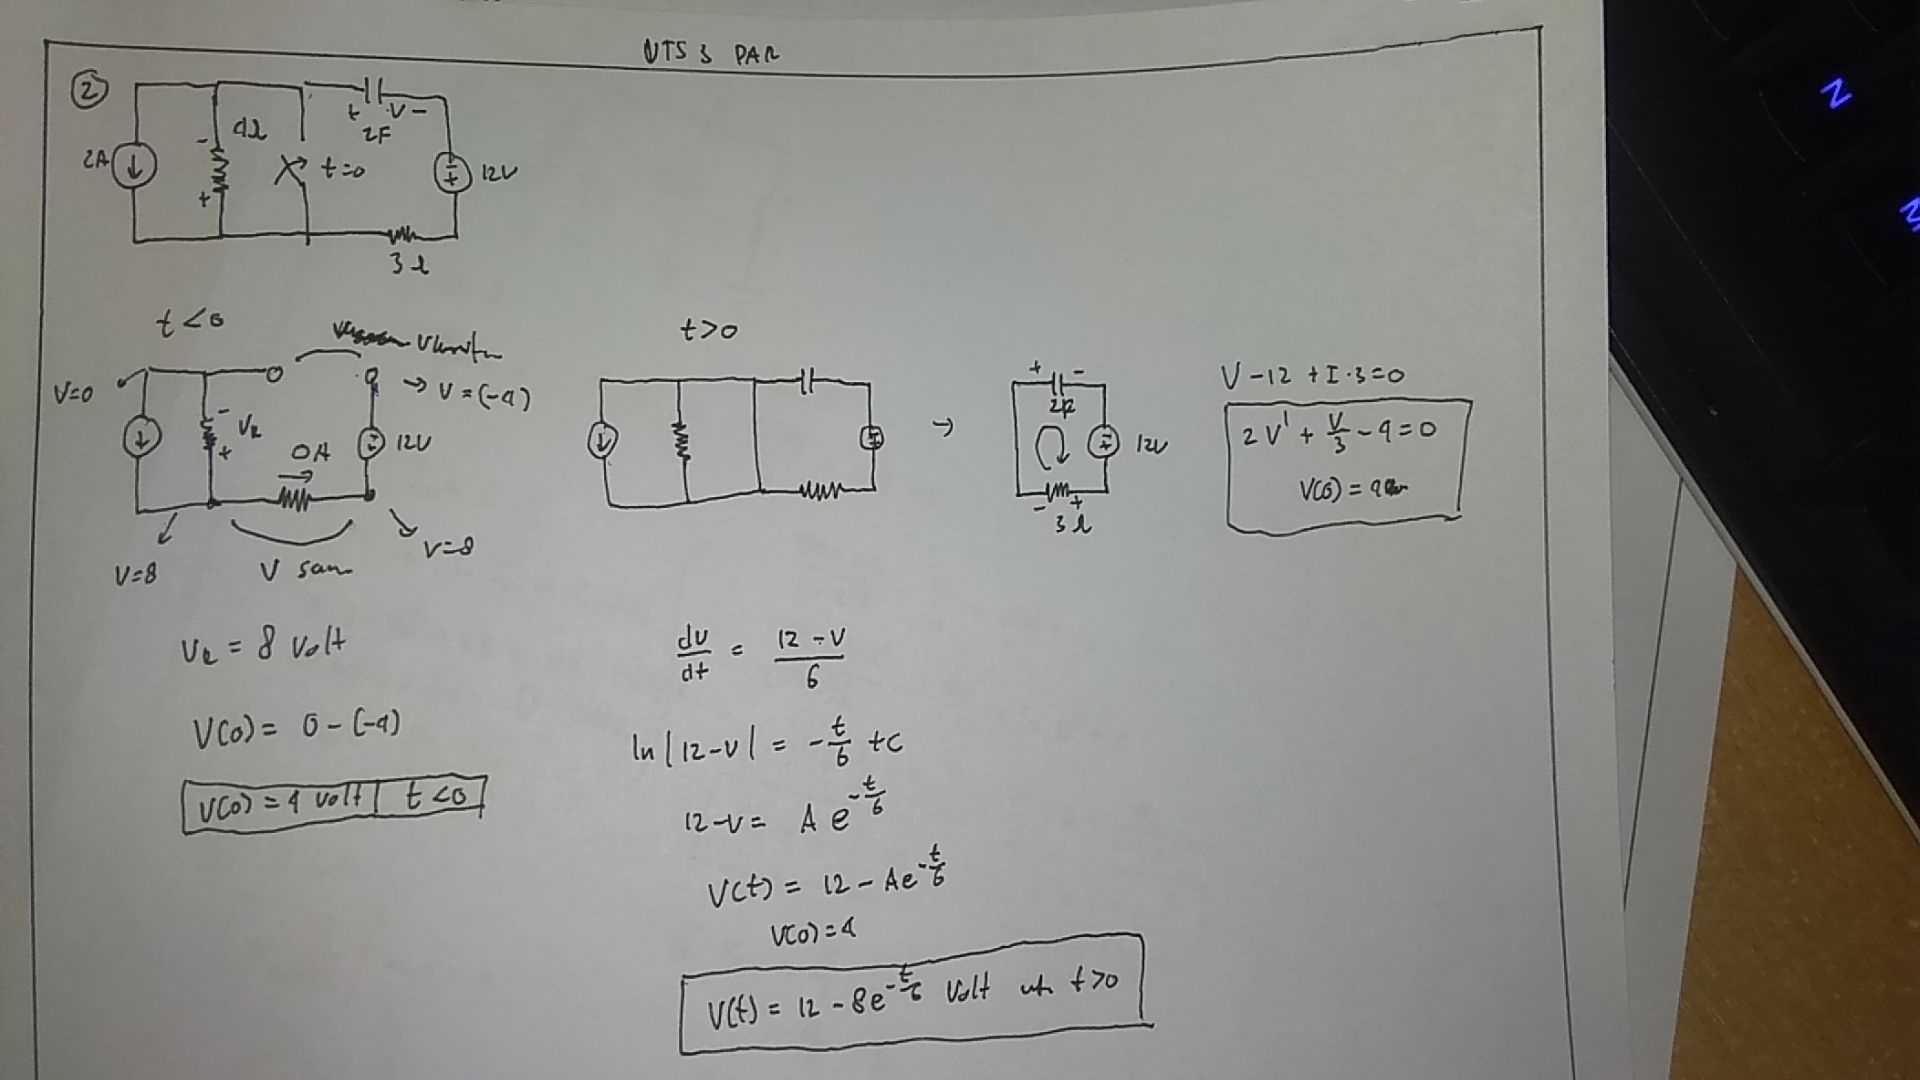 UTS 3 PAR
2
2A
4Ω
- +
t=0
+ V -
2F
12V
3Ω
t<0
V=0
V=(-4)
- VR +
0A
12V
V=8
V sam
V=8
VR = 8 volt
V(0) = 0-(-4)
V(0) = 4 volt | t<0
t>0
→
+ -
2F
12V
- +
3Ω
V-12 + I·3=0
2V' + V/3 - 4 = 0
V(0) = 4
dv/dt = 12-V/6
ln|12-V| = -t/6 + C
12-V = A e^-t/6
V(t) = 12 - Ae^-t/6
V(0) = 4
V(t) = 12 - 8e^-t/6 Volt utk t>0